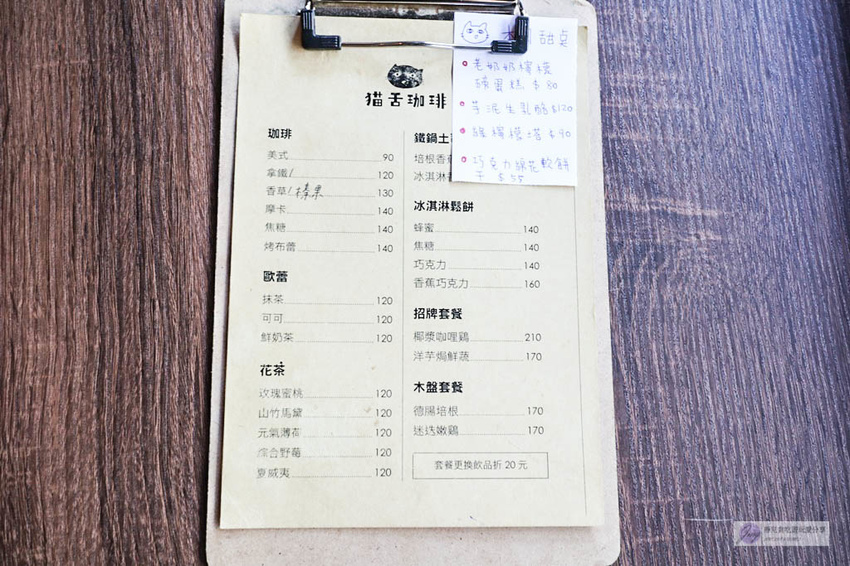 猫舌珈琲
珈琲
美式 90
拿鐵 120
香草/榛果 130
摩卡 140
焦糖 140
烤布蕾 140
歐蕾
抹茶 120
可可 120
鮮奶茶 120
花茶
玫瑰蜜桃 120
山竹馬黛 120
元氣薄荷 120
綜合野莓 120
夏威夷 120
甜桌
老奶奶檸檬
磅蛋糕 $80
芋泥生乳酪 $120
檸檬塔 $90
巧克力棉花軟餅
干 $55
鐵鍋土
培根香
冰淇淋
冰淇淋鬆餅
蜂蜜 140
焦糖 140
巧克力 140
香蕉巧克力 160
招牌套餐
椰漿咖哩鷄 210
洋芋焗鮮蔬 170
木盤套餐
德腸培根 170
迷迭嫩鷄 170
套餐更換飲品折 20 元